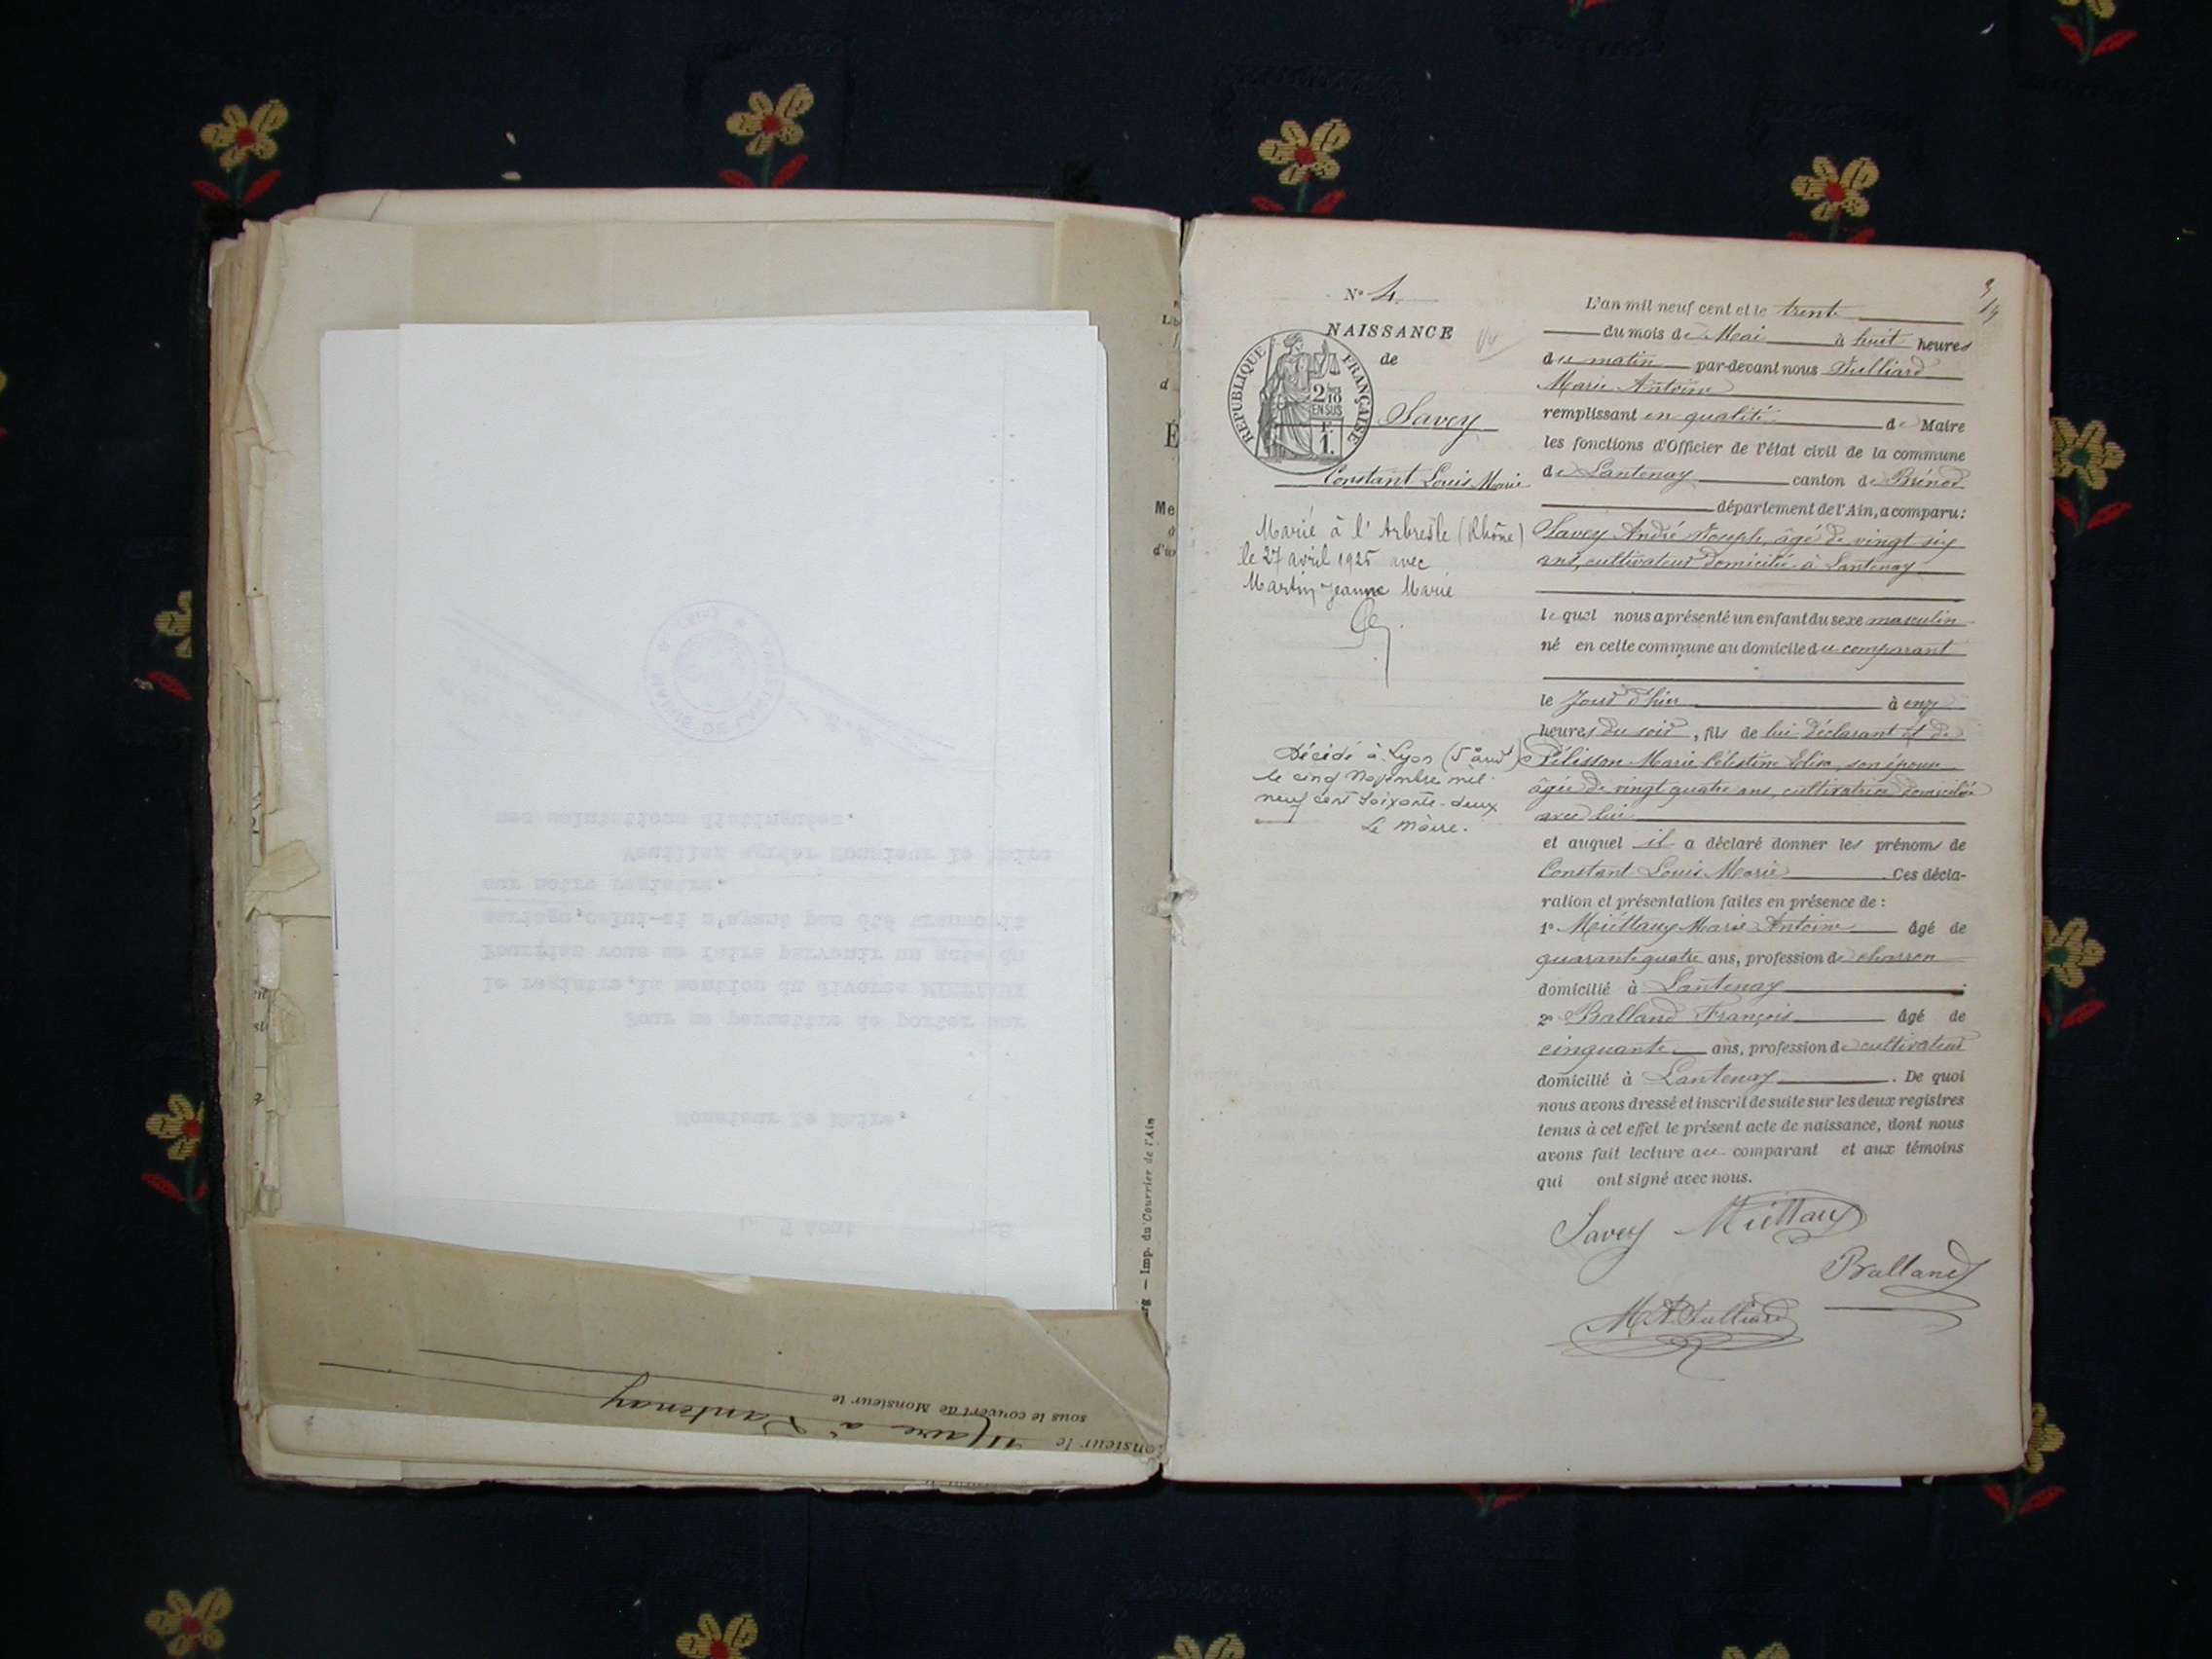 N° 4
NAISSANCE
de
RÉPUBLIQUE FRANÇAISE
2/10
EN SUS
1.
Savey
Constant Louis Marie
Marié à l'Arbresle (Rhône)
le 27 avril 1925 avec
Martin Jeanne Marie
Décédé à Lyon (5e arrd)
le cinq Novembre mil
neuf cent soixante-deux
Le Maire.
L'an mil neuf cent et le trente
du mois de Mai à huit heures
du matin par-devant nous Julliard
Marie Antoine
remplissant en qualité de Maire
les fonctions d'Officier de l'état civil de la commune
de Lantenay canton de Brénod
département de l'Ain, a comparu :
Savey André Joseph, âgé de vingt six
ans, cultivateur domicilié à Lantenay
lequel nous a présenté un enfant du sexe masculin
né en cette commune au domicile du comparant
le jour d'hier à onze
heures du soir, fils de lui déclarant et de
Pélisson Marie Célestine Elisa, son épouse
âgée de vingt quatre ans, cultivatrice domiciliée
avec lui
et auquel il a déclaré donner les prénoms de
Constant Louis Marie Ces décla-
ration et présentation faites en présence de :
1° Miéttaux Marie Antoine âgé de
quarante quatre ans, profession de charron
domicilié à Lantenay
2° Balland François âgé de
cinquante ans, profession de cultivateur
domicilié à Lantenay. De quoi
nous avons dressé et inscrit de suite sur les deux registres
tenus à cet effet le présent acte de naissance, dont nous
avons fait lecture au comparant et aux témoins
qui ont signé avec nous.
Savey Miéttaux
Balland
M A Julliard
Imp. du Courrier de l'Ain
sous le couvert de Monsieur le
Monsieur le Maire à Lantenay
Monsieur le Maire,
Pour me permettre de porter sur
le registre, la mention du divorce
Pourriez vous me faire parvenir un acte du
mariage, celui-ci n'ayant pas été transcrit
sur notre registre.
Veuillez agréer Monsieur le Maire
mes salutations distinguées.